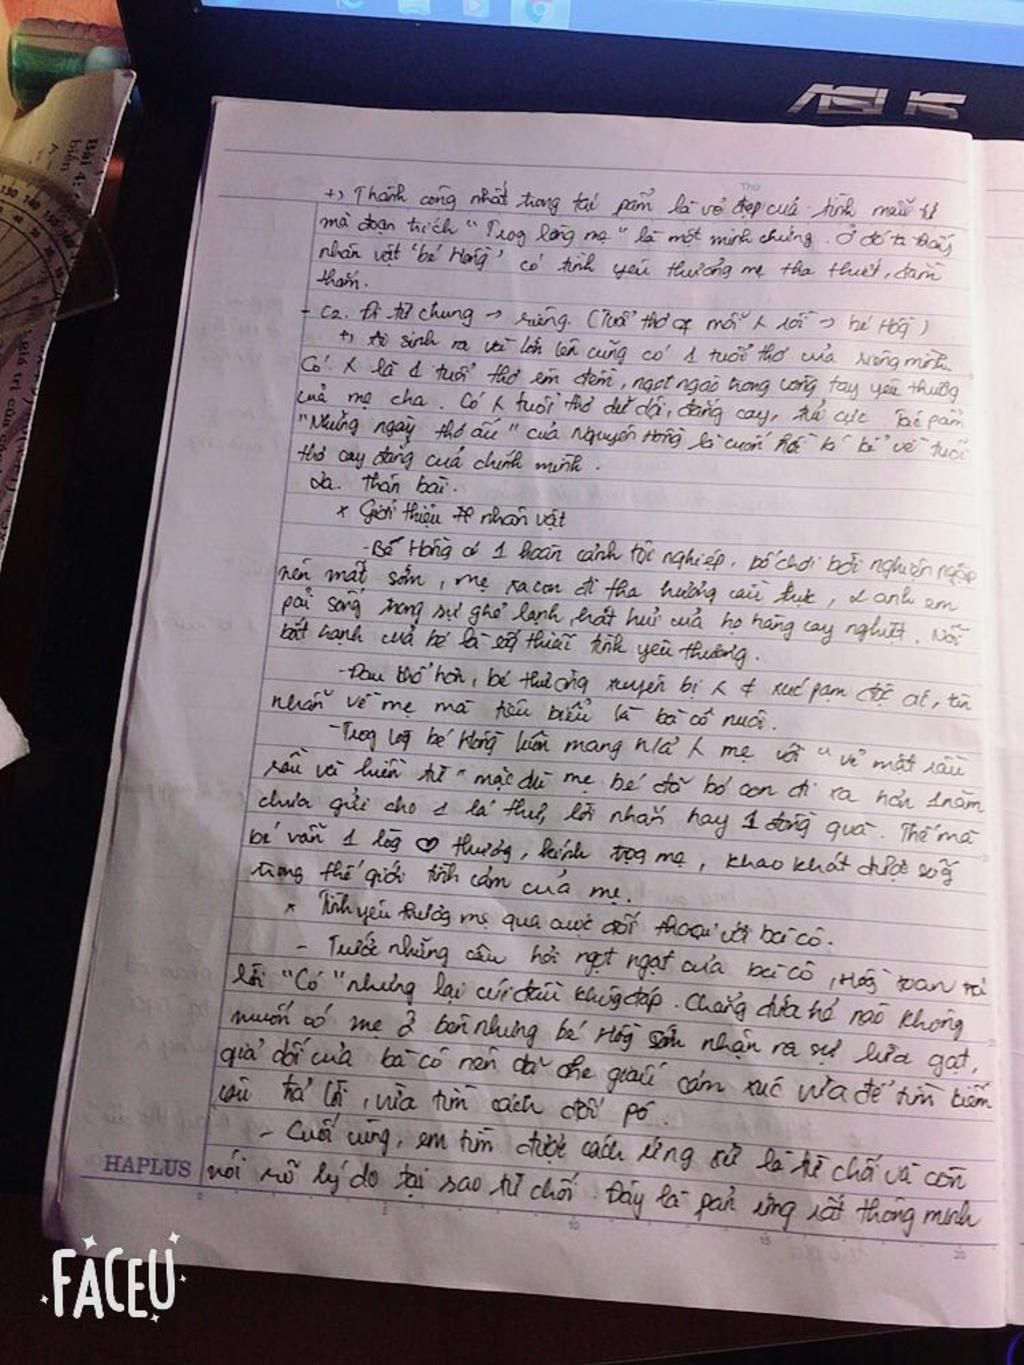 ASUS
Bài 4:
Thứ
+, Thành công nhất trong tác pẩm là vẻ đẹp của tình mẫu tử
mà đoạn trích "Trog lòng mẹ" là một minh chứng. Ở đó ta thấy
nhân vật 'bé Hồng' có tình yêu thương mẹ tha thiết, đằm
thắm.
- C2. Đi từ chung → riêng. (Tuổi thơ of mỗi λ rồi → bé Hồg)
+, Ai sinh ra và lớn lên cũng có 1 tuổi thơ của riêng mình.
Có λ là 1 tuổi thơ êm đềm, ngọt ngào trong vòng tay yêu thương
của mẹ cha. Có λ tuổi thơ dữ dội, đắng cay, tủi cực. Tác pẩm
"Những ngày thơ ấu" của Nguyên Hồng là cuốn hồi kí kể về tuổi
thơ cay đắng của chính mình.
2a. Thân bài.
* Giới thiệu nhân vật
- Bé Hồng có 1 hoàn cảnh tội nghiệp, bố chơi bời nghiện ngập
nên mất sớm, mẹ xa con đi tha hương cầu thực, 2 anh em
pải sống trong sự ghẻ lạnh, hắt hủi của họ hàng cay nghiệt. Nỗi
bất hạnh của bé là sống thiếu tình yêu thương.
- Đau khổ hơn, bé thường xuyên bị λ ≠ xúc pạm độc ác, tàn
nhẫn về mẹ mà tiêu biểu là bà cô ruôi.
- Trog lòg bé Hồng luôn mang h/ả λ mẹ với "vẻ mặt rầu
rầu và hiền từ" mặc dù mẹ bé đã bỏ con đi ra hơn 1 năm
chưa gửi cho 1 lá thư, lời nhắn hay 1 đồng quà. Thế mà
bé vẫn 1 lòg ♡ thương, kính trọg mẹ, khao khát được sốg
trong thế giới tình cảm của mẹ.
* Tình yêu thươg mẹ qua cuộc đối thoại với bà cô.
- Trước những câu hỏi ngọt ngạt của bà cô, Hồg toan trả
lời "Có" nhưng lại cúi đầu không đáp. Chẳng đứa trẻ nào không
muốn có mẹ ở bên nhưng bé Hồg sớm nhận ra sự lừa gạt,
giả dối của bà cô nên đã che giấu cảm xúc vừa để tìm kiếm
câu trả lời, vừa tìm cách đối pó.
- Cuối cùng, em tìm được cách ứng xử là từ chối và còn
nói rõ lý do tại sao từ chối. Đây là pản ứng rất thông minh
HAPLUS
0 5 10 15 20
FACEU